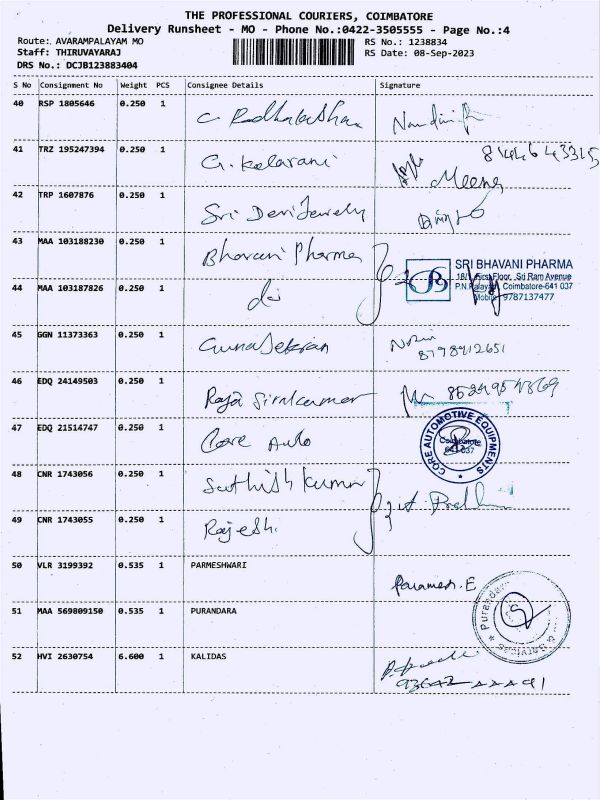 THE PROFESSIONAL COURIERS, COIMBATORE
Delivery Runsheet - MO - Phone No.:0422-3505555 - Page No.:4
Route: AVARAMPALAYAM MO RS No.: 1238834
Staff: THIRUVAYARAJ RS Date: 08-Sep-2023
DRS No.: DCJB123883404
S No Consignment No Weight PCS Consignee Details Signature
40 RSP 1805646 0.250 1
41 TRZ 195247394 0.250 1 G. Kalarani Meena
42 TRP 1607876 0.250 1 Sri Devi Jewelry
43 MAA 103188230 0.250 1 Bhavani Pharma
SRI BHAVANI PHARMA
18/1, First Floor, Sri Ram Avenue
P.N.Palayam, Coimbatore-641 037
Mobile : 9787137477
44 MAA 103187826 0.250 1 do
45 GGN 11373363 0.250 1 Gunasekran
46 EDQ 24149503 0.250 1 Raja Sivakumar
47 EDQ 21514747 0.250 1 Core Auto
CORE AUTOMOTIVE EQUIPMENTS
Coimbatore
641 037
48 CNR 1743056 0.250 1 Sathish Kumar
49 CNR 1743055 0.250 1 Rajesh.
50 VLR 3199392 0.535 1 PARMESHWARI Paramesh. E
51 MAA 569809150 0.535 1 PURANDARA
52 HVI 2630754 6.600 1 KALIDAS